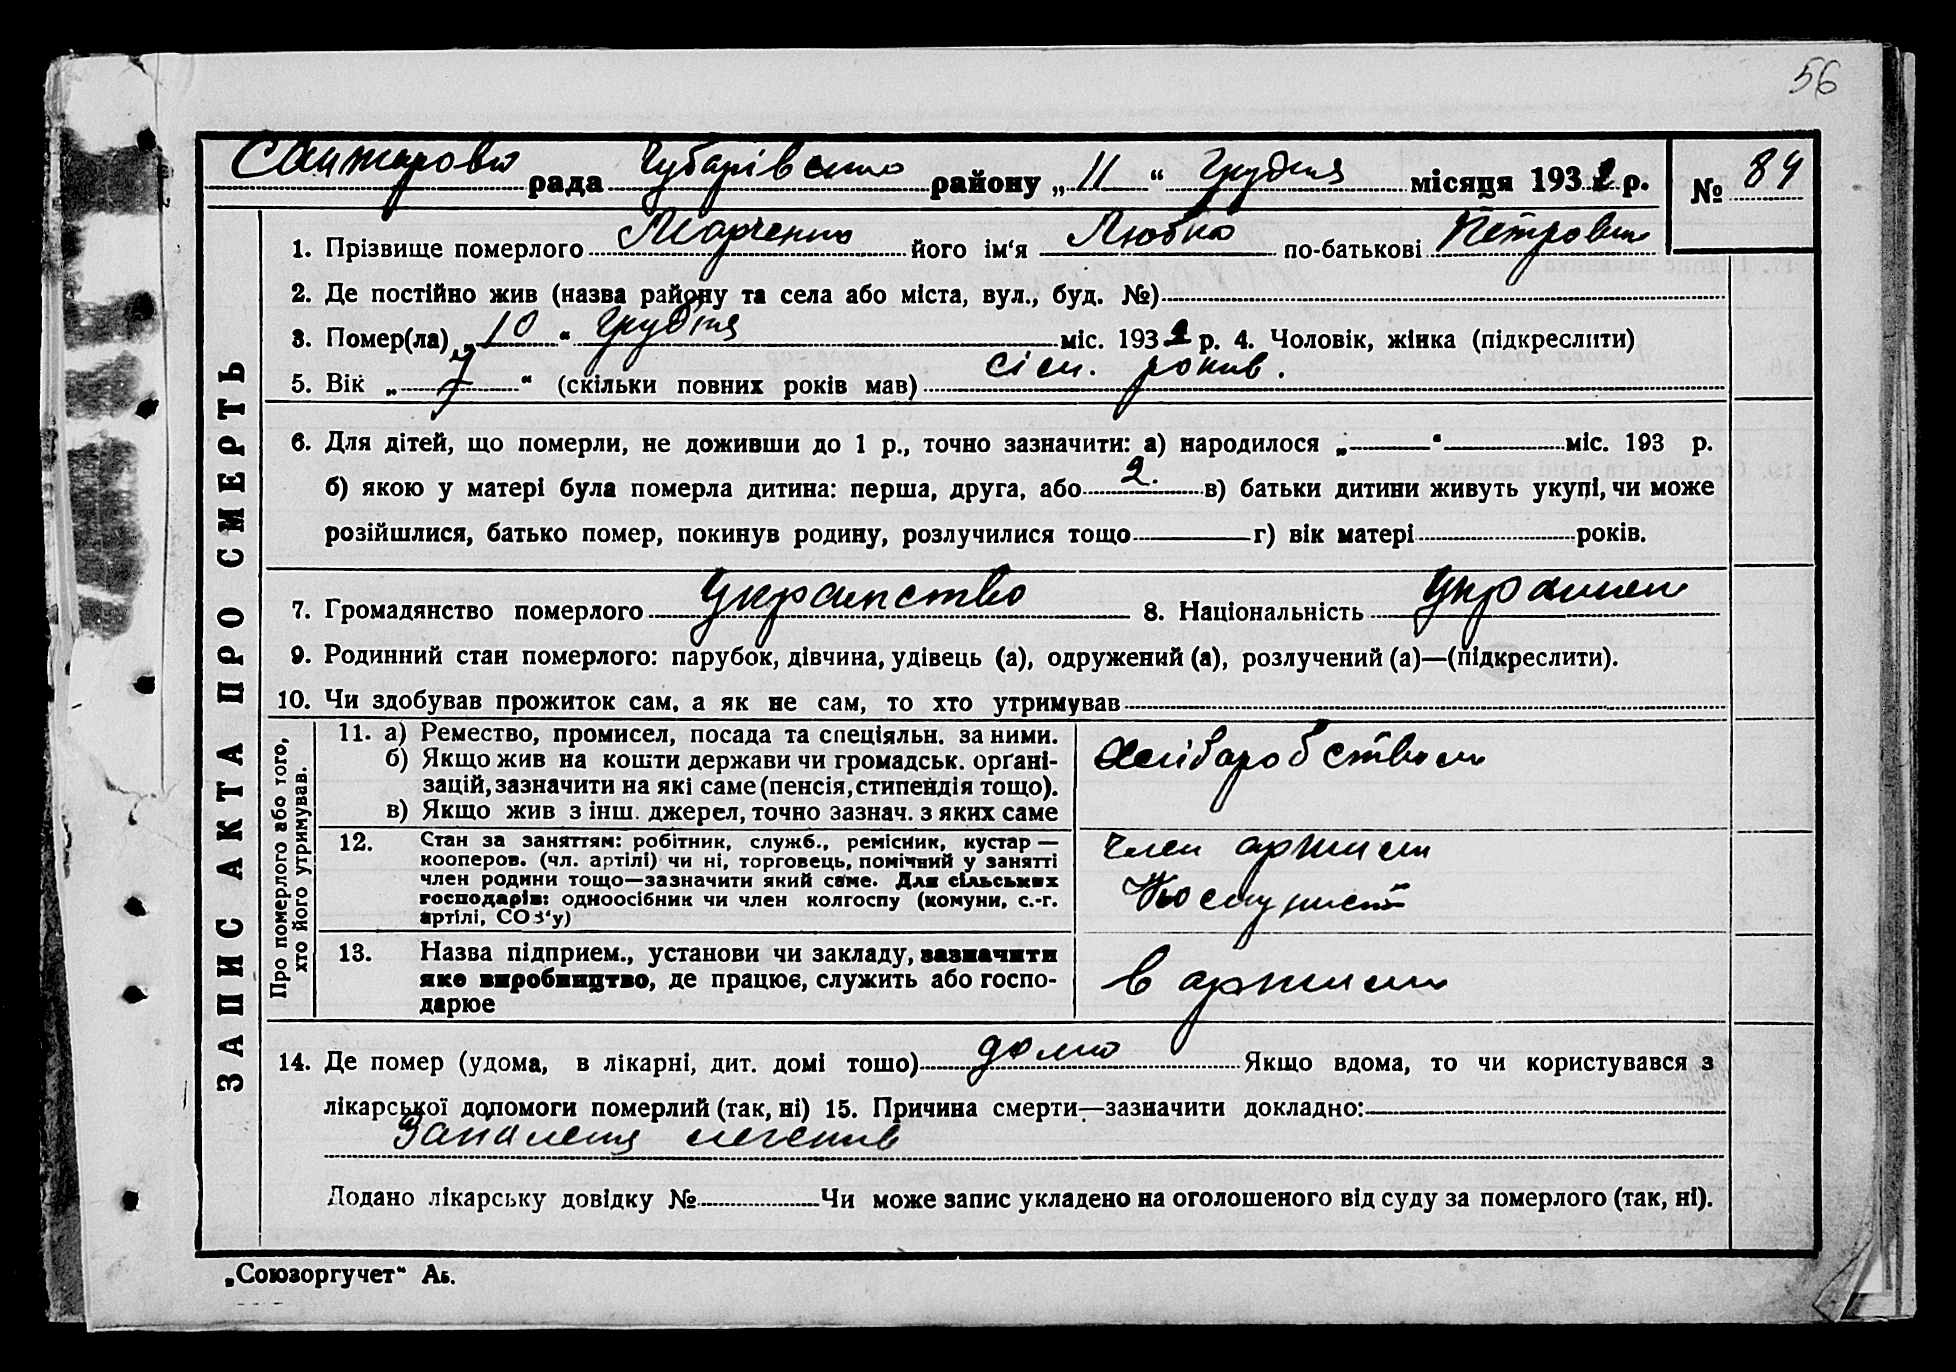 56
рада Чубарівська району „ 11 “ Грудня місяця 1932 р. № 84
ЗАПИС АКТА ПРО СМЕРТЬ
1. Прізвище померлого Марченко його ім'я Любка по-батькові Петрович
2. Де постійно жив (назва району та села або міста, вул., буд. №)
3. Помер(ла) „ 10 “ Грудня міс. 1932 р. 4. Чоловік, жінка (підкреслити)
5. Вік „ 7 “ (скільки повних років мав) сім. рокив.
6. Для дітей, що померли, не доживши до 1 р., точно зазначити: а) народилося „ “ міс. 193 р.
б) якою у матері була померла дитина: перша, друга, або 2. в) батьки дитини живуть укупі, чи може
розійшлися, батько помер, покинув родину, розлучилися тощо г) вік матері років.
7. Громадянство померлого 8. Національність
9. Родинний стан померлого: парубок, дівчина, удівець (а), одружений (а), розлучений (а)—(підкреслити).
10. Чи здобував прожиток сам, а як не сам, то хто утримував
Про померлого або того,
хто його утримував.
11. а) Ремество, промисел, посада та спеціяльн. за ними.
б) Якщо жив на кошти держави чи громадськ. орґані-
зацій, зазначити на які саме (пенсія, стипендія тощо).
в) Якщо жив з інш. джерел, точно зазнач. з яких саме
12. Стан за заняттям: робітник, служб., ремісник, кустар —
кооперов. (чл. артілі) чи ні, торговець, помічний у занятті
член родини тощо—зазначити який саме. Для сільських
господарів: одноосібник чи член колгоспу (комуни, с.-г.
артілі, СОЗ'у)
член артили
13. Назва підприєм., установи чи закладу, зазначити
яке виробництво, де працює, служить або госпо-
дарює
в артили
14. Де помер (удома, в лікарні, дит. домі тошо) дома Якщо вдома, то чи користувався з
лікарської допомоги померлий (так, ні) 15. Причина смерти—зазначити докладно:
Запаления легенив
Додано лікарську довідку № Чи може запис укладено на оголошеного від суду за померлого (так, ні).
„Союзоргучет“ Аб.